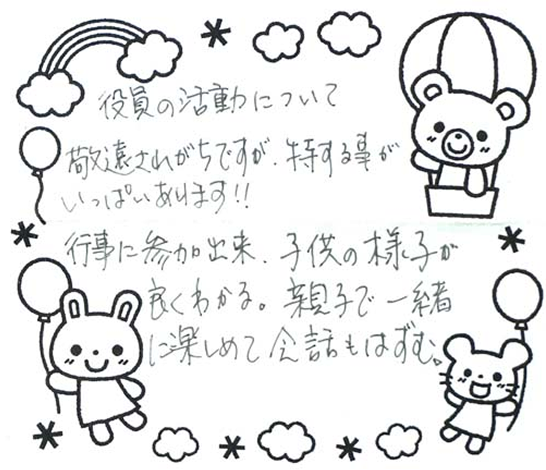 役員の活動について
敬遠されがちですが、特する事が
いっぱいあります!!
行事に参加出来、子供の様子が
良くわかる。親子で一緒
に楽しめて会話もはずむ。